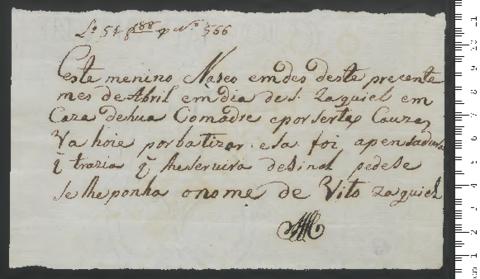 Lo 51 f 188 N.o 566
este menino Naseo em des deste precente
mes de Abril em dia de S. Zaquiel em
Caza de hua Comadre e por serta Cauza
Va hoie por batizar e la foi apensadura
q̃ trazia q̃ lhe servira de Sinal pedese
se lhe ponha o nome de Vito Zaquiel